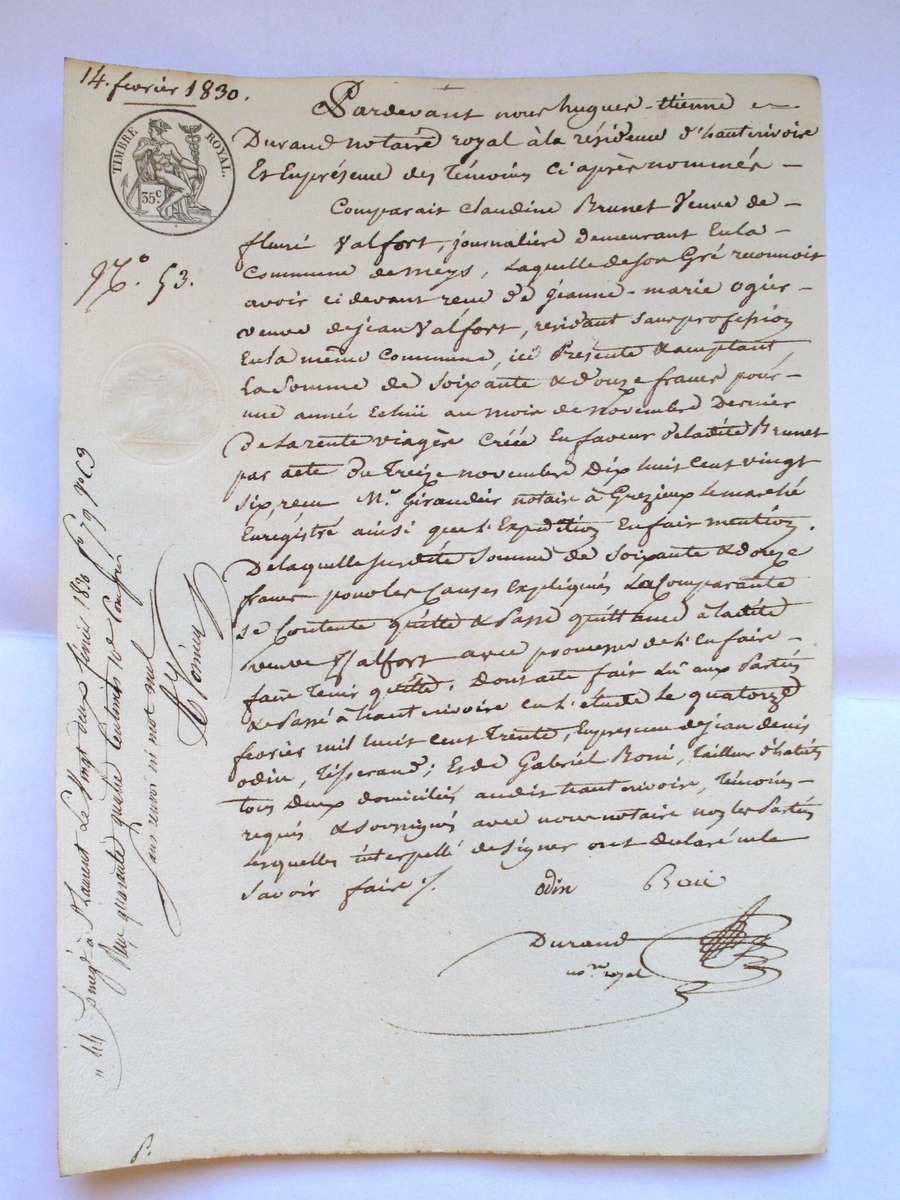 14. fevrier 1830.
TIMBRE ROYAL.
35c
N.o 53.
Pardevant nous hugues-étienne
Durand notaire royal à la résidence d'hauterivoire
Et En présence des Témoins ci après nommés -
Comparait Claudine Brunet Veuve de -
fleuri Valfort, journalière Demeurant En la -
Commune de meys, Laquelle de son Gré reconnoit
avoir ci devant recu de jeanne-marie ogier -
veuve de jean Valfort, residant sans profession
En la même Commune, ici Présente & acceptant,
La Somme de Soixante & douze francs pour -
une année Echuë au mois de novembre Dernier
De la rente viagère créée En faveur de ladite Brunet
par acte du Treize novembre Dix huit cent vingt
six, recu Me. Giraudier notaire à Grezieux le marché
Enregistré ainsi que l'Expedition En fait mention.
De laquelle susdite Somme de Soixante & douze
francs pour les Causes Expliquées La Comparante
se Contente quitte & Passe quittance à ladite
veuve Valfort avec promesse de l'en faire -
faire tenir quitte. Dont acte fait Lû aux Parties
& Passé à haut rivoire en l'étude le quatorze
fevrier mil huit cent Trente, En presence de jean denis
odin, Tisserand; Et de Gabriel Boni, Tailleur d'habits
tous deux domiciliés audit haut rivoire, Témoins -
requis & soussignés avec nous notaire non les Parties
lesquelles interpellé de signer ont déclaré ne le
Savoir faire ./.
odin
Durand
no.re royal
44 Enregé à St Laurent le Vingt deux février 1830 fo 19 vo C 9
Reçu quarante quatre Centimes 10e Compris
sans renvoi ni mot nul